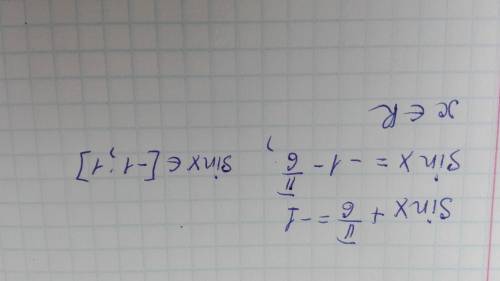 sinx + π/6 = -1
sinx = -1 - π/6, sinx ∈ [-1; 1]
x ∈ R